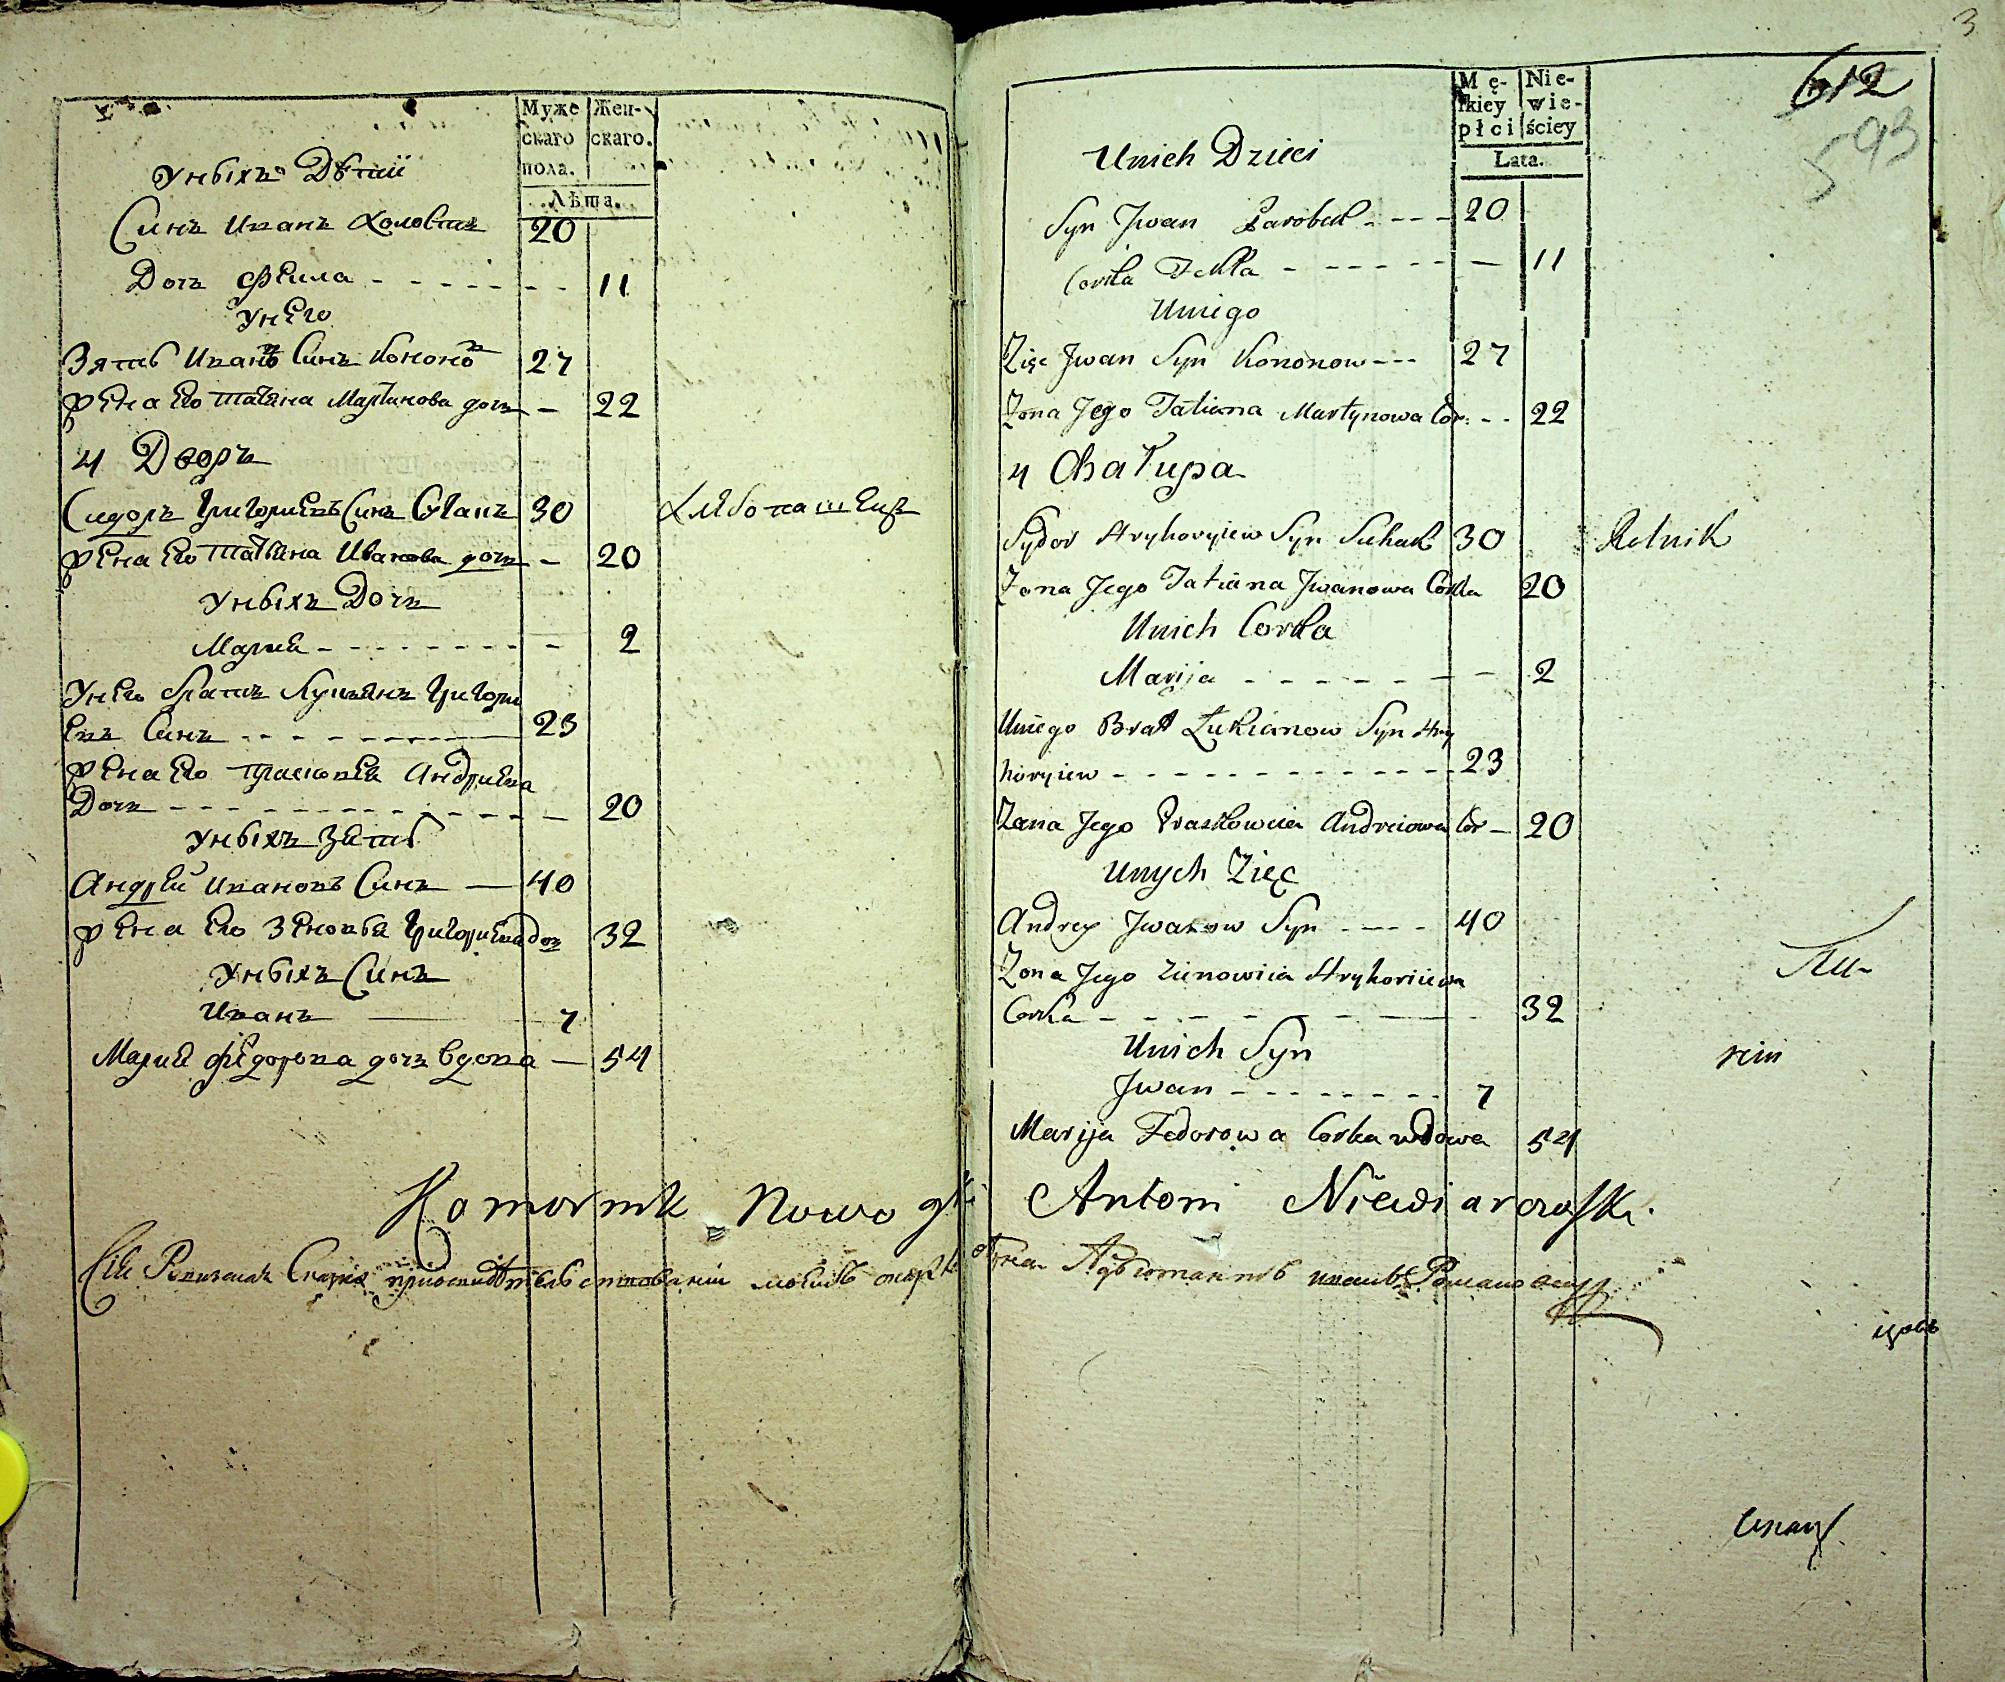 Муже
скаго
пола.
Жен-
скаго.
Лѣта.
Унӣхъ Дѣтӣ
Синъ Иванъ Холостъ 20
Дочъ Фекла - - - - - - - 11
Унего
Зять Иванъ Синъ Кононо 27
Жена Его Татияна Мартинова дочъ - 22
4 Дворъ
Сидоръ Григориевъ Синъ 30 Хлѣбопашецъ
Жена Его Татияна Иванова дочъ - 20
Унихъ Дочъ
Мария - - - - - - - - 2
Унего Братъ Лукьянъ Григори
евъ Синъ - - - - - - 23
Жена Его Прасковея Андриева
Дочъ - - - - - - - - - 20
Унихъ Зять
Андрей Ивановъ Синъ — 40
Жена Его Зеновья Григориева доч 32
Унихъ Синъ
Иванъ — 7
Мария Федорова дочъ вдова — 54
Komornik Nowog
3
612
593
Mę-
skiey
płci
Nie-
wie-
ściey
Lata.
Unich Dzieci
Syn Jwan Parobek - - - - 20
Corka Tekla - - - - - - - 11
Uniego
Zięc Jwan Syn Kononow - - - 27
Zona Jego Tatiana Martynowa Cor: - - 22
4 Chałupa
Sydor Hryhoryiew Syn Suhak 30 Rolnik
Zona Jego Tatiana Jwanowa Corka 20
Unich Corka
Marija - - - - - - - - 2
Uniego Brat Łukianow Syn Hry
horyiew - - - - - - - - - - - - 23
Zona Jego Praskowiia Andreiowa Cor - 20
Unych Zięc
Andrey Jwanow Syn - - - - 40
Zona Jego Zienowiia Hryhoriiewa
Corka - - - - - - - - - - 32
Unich Syn
Jwan - - - - - - - 7
Marija Fedorowa Corka wdowa 54
Antoni Niewiarowski.